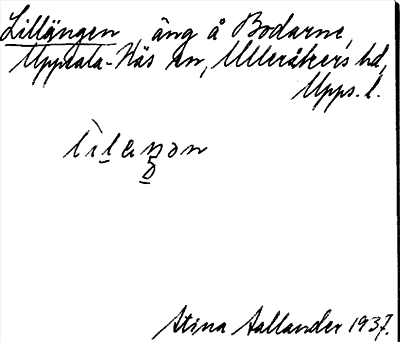 Lillängen, äng å Bodarne,
Uppsala-Näs sn, Ulleråkers hd,
Upps. l.
Stina Aallander 1937.